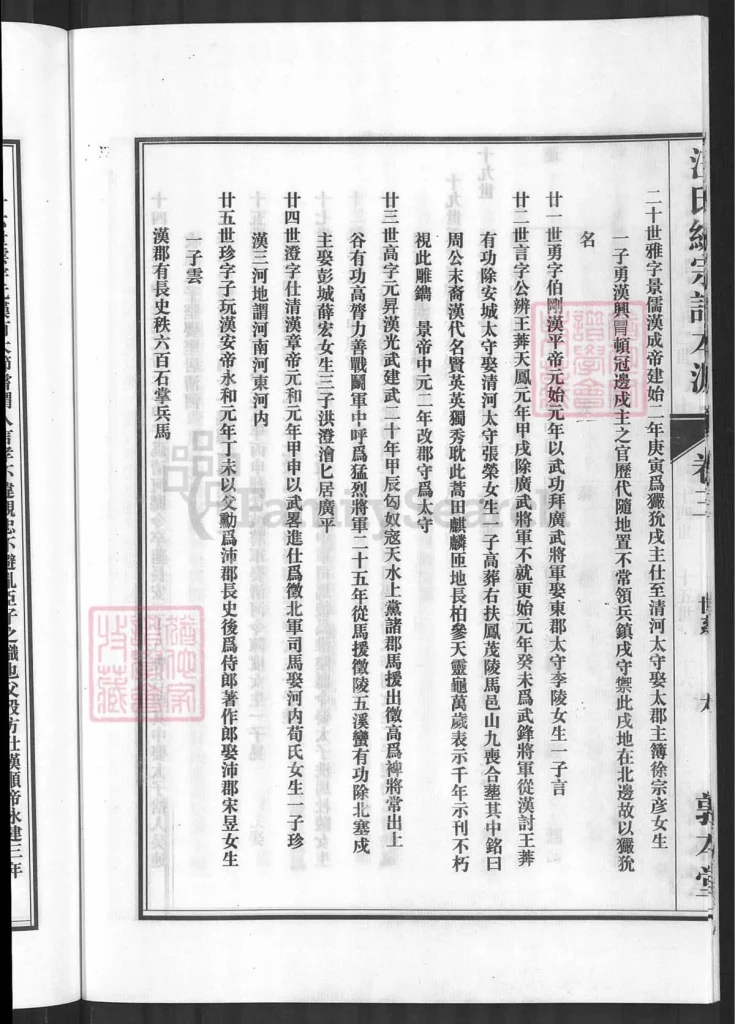 汪氏統宗譜本源
卷三
敦本堂
二十世雅字景儒漢成帝建始二年庚寅爲玁狁戍主仕至清河太守娶太郡主簿徐宗彦女生
一子勇漢興冒頓冠邊戍主之官歷代隨地置不常領兵鎮戍守禦此戍地在北邊故以玁狁
名
廿一世勇字伯剛漢平帝元始元年以武功拜廣武將軍娶東郡太守李陵女生一子言
廿二世言字公辨王莽天鳳元年甲戌除廣武將軍不就更始元年癸未爲武鋒將軍從漢討王莽
有功除安城太守娶清河太守張榮女生一子高葬右扶鳳茂陵馬邑山九喪合塟其中銘曰
周公末裔漢代名賢英英獨秀耽此蒿田麒麟匝地長柏參天靈龜萬歲表示千年示刊不朽
視此雕鐫 景帝中元二年改郡守爲太守
廿三世高字元昇漢光武建武二十年甲辰匈奴寇天水上黨諸郡馬援出徵高爲裨將常出上
谷有功高膂力善戰鬭軍中呼爲猛烈將軍二十五年從馬援徵陵五溪蠻有功除北塞戍
主娶彭城薛宏女生三子洪澄澮匕居廣平
廿四世澄字仕清漢章帝元和元年甲申以武畧進仕爲徵北軍司馬娶河内荀氏女生一子珍
漢三河地謂河南河東河内
廿五世珍字子玩漢安帝永和元年丁未以父勳爲沛郡長史後爲侍郎著作郎娶沛郡宋昱女生
一子雲
漢郡有長史秩六百石掌兵馬
FamilySearch